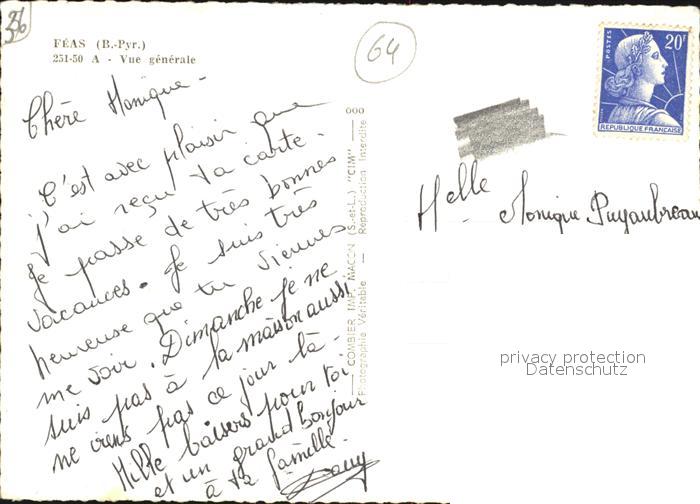 56
64
FÉAS (B.-Pyr.)
251-50 A - Vue générale
Chère Monique -
C'est avec plaisir que
j'ai reçu ta carte.
Je passe de très bonnes
vacances. Je suis très
heureuse que tu viennes
me voir. Dimanche je ne
suis pas à la maison aussi
ne viens pas ce jour là -
Mille baisers pour toi
et un grand bonjour
à ta famille -
Dany
COMBIER IMP. MACON (S.-et-L.) "CIM"
Photographie Véritable - Reproduction Interdite
POSTES
20F
REPUBLIQUE FRANÇAISE
Melle Monique Puyaubreau
privacy protection
Datenschutz